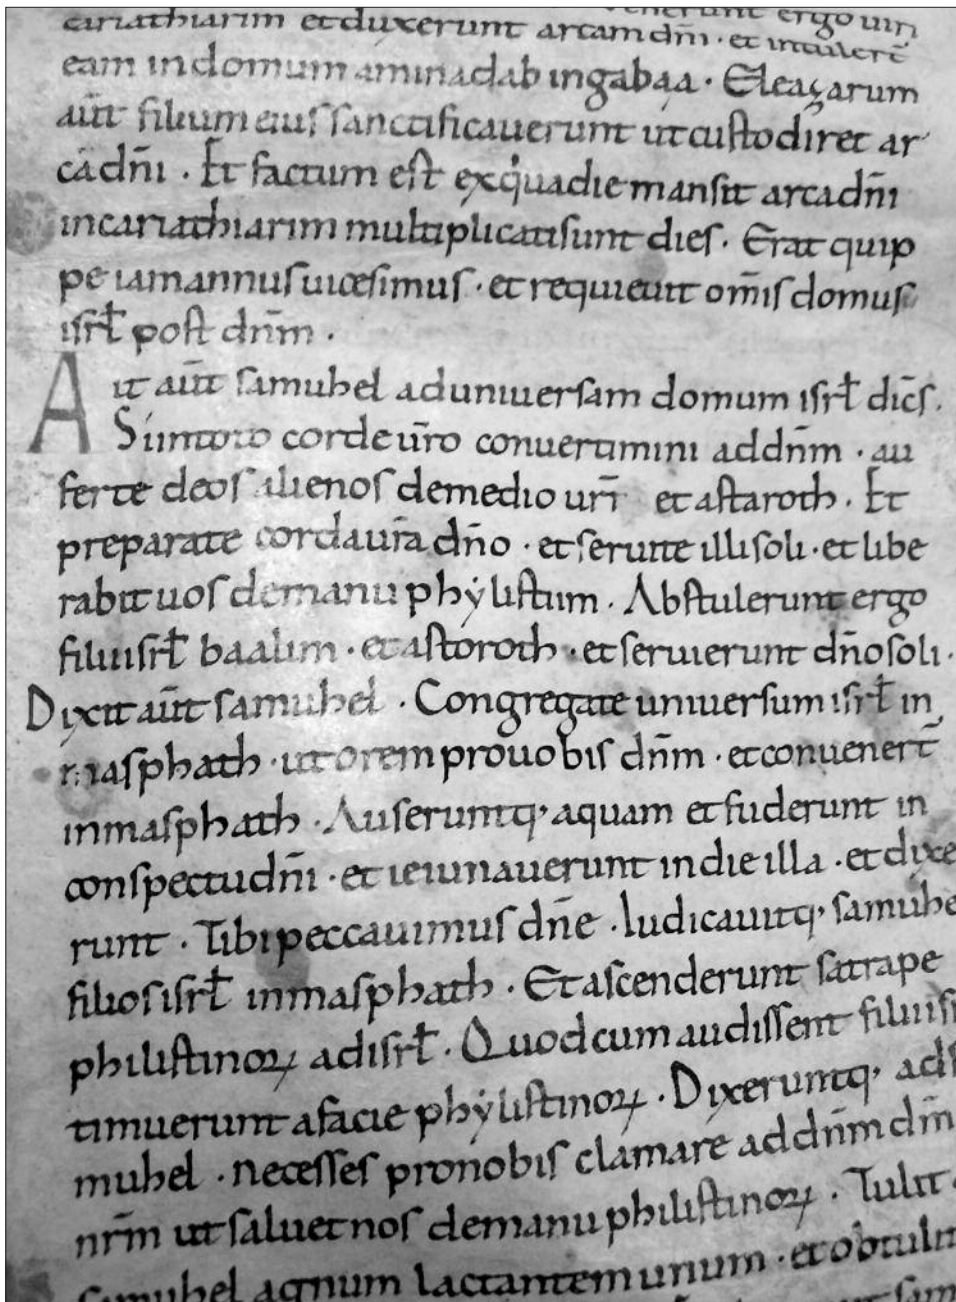 uenerunt ergo uiri
cariathiarim et duxerunt arcam dñi · et intuler̄t
eam in domum aminadab in gabaa · Eleaçarum
aūt filium eius sanctificauerunt ut custodiret ar
cā dñi · Et factum est ex qua die mansit arca dñi
in cariathiarim multiplicati sunt dies · Erat quip
pe iam annus uicesimus · et requieuit om̄is domus
isrł post dn̄m ·
Ait aūt samuhel ad uniuersam domum isrł dic̄s ·
Si in toto corde ur̄o conuertimini ad dn̄m · au
ferte deos alienos de medio urī et astaroth · Et
preparate corda ur̄a dño · et seruite illi soli · et libe
rabit uos de manu phẏlistiim · Abstulerunt ergo
filii isrł baalim · et astoroth · et seruierunt dño soli ·
Dixit aūt samuhel · Congregate uniuersum isrł in
masphath · ut orem pro uobis dn̄m · et conuener̄t
in masphath · Auseruntq; aquam et fuderunt in
conspectu dñi · et ieiunauerunt in die illa · et dixe
runt · Tibi peccauimus dñe · Iudicauitq; samuhe
filios isrł in masphath · Et ascenderunt satrape
philistinoꝝ ad isrł · Quod cum audissent filii is
timuerunt a facie phẏlistinoꝝ · Dixeruntq; ad s
muhel · Ne cesses pro nobis clamare ad dn̄m dm̄
nr̄m ut saluet nos de manu philistinoꝝ · Tulit
samuhel agnum lactantem unum · et obtulit